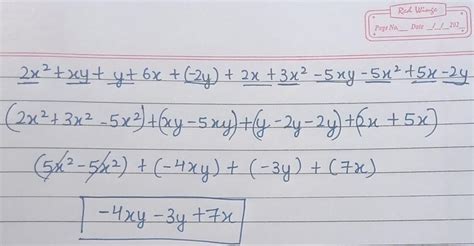 Red Wings
Page No.___ Date __/__/202__
2x² + xy + y + 6x + (-2y) + 2x + 3x² - 5xy - 5x² + 5x - 2y
(2x² + 3x² - 5x²) + (xy - 5xy) + (y - 2y - 2y) + (2x + 5x)
(5x² - 5x²) + (-4xy) + (-3y) + (7x)
-4xy - 3y + 7x